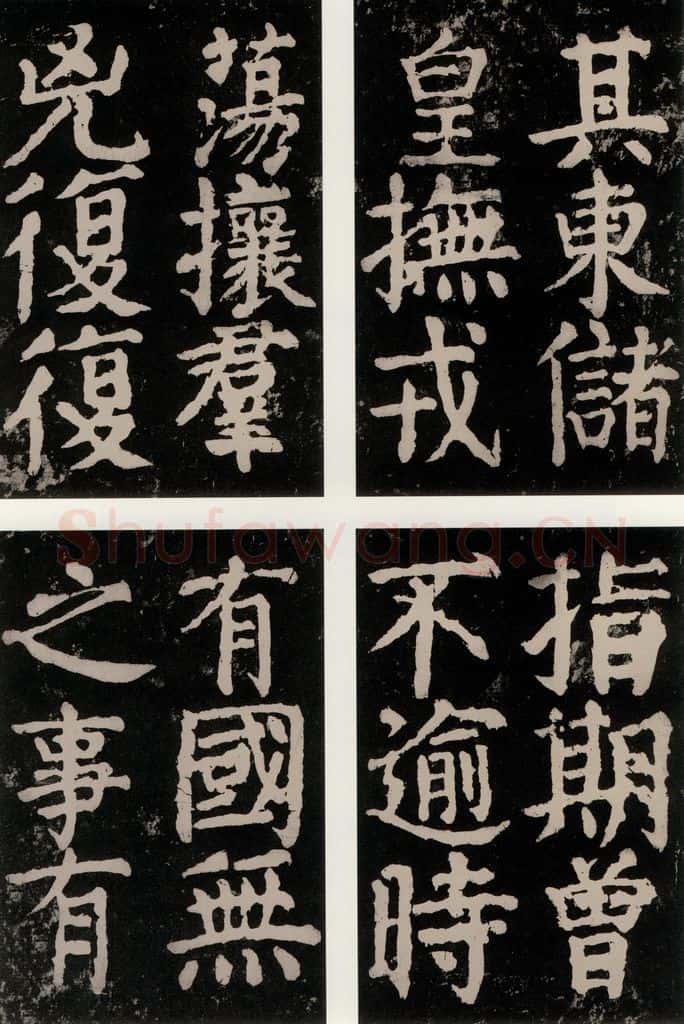 其東儲
皇撫戎
蕩攘羣
兇復復
指期曾
不逾時
有國無
之事有
Shufawang.CN